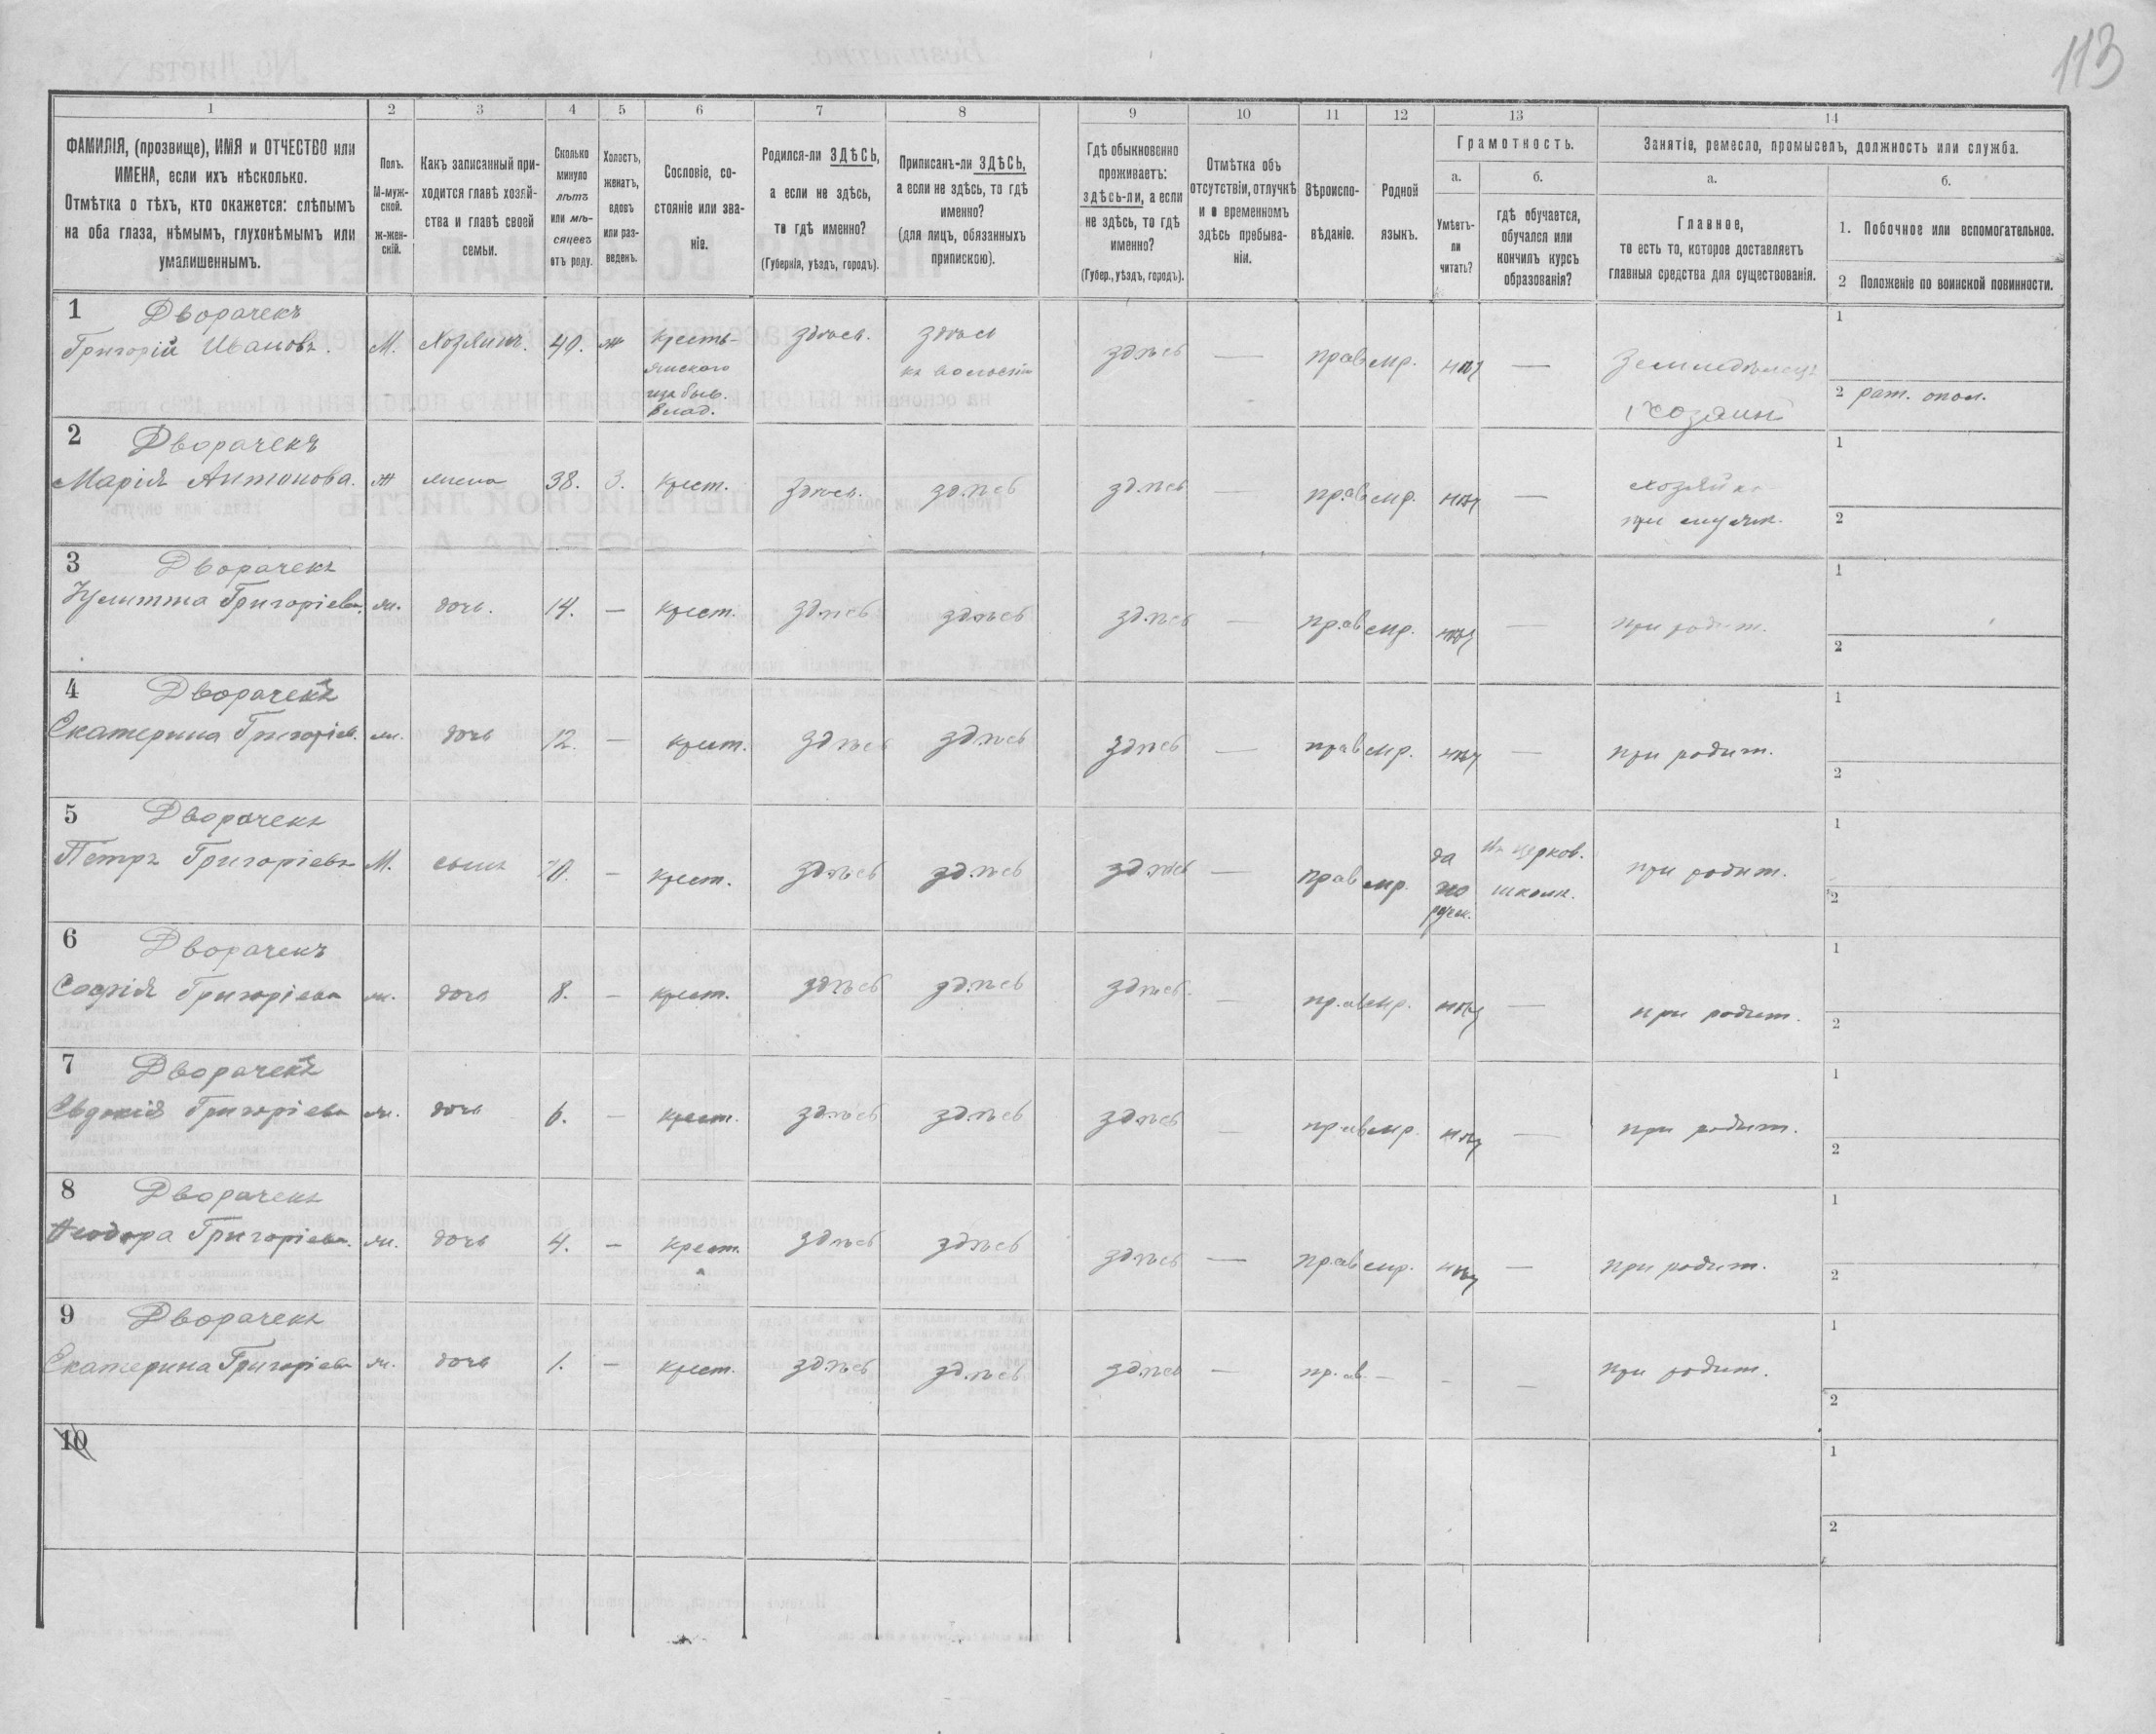 113
1 2 3 4 5 6 7 8 9 10 11 12 13 14
ФАМИЛІЯ, (прозвище), ИМЯ и ОТЧЕСТВО или
ИМЕНА, если ихъ нѣсколько.
Отмѣтка о тѣхъ, кто окажется: слѣпымъ
на оба глаза, нѣмымъ, глухонѣмымъ или
умалишеннымъ.
Полъ.
М-муж-
ской.
ж-жен-
скій.
Какъ записанный при-
ходится главѣ хозяй-
ства и главѣ своей
семьи.
Сколько
минуло
лѣтъ
или мѣ-
сяцевъ
отъ роду.
Холостъ,
женатъ,
вдовъ
или раз-
веденъ.
Сословіе, со-
стояніе или зва-
ніе.
Родился-ли ЗДѢСЬ,
а если не здѣсь,
то гдѣ именно?
(Губернія, уѣздъ, городъ).
Приписанъ-ли ЗДѢСЬ,
а если не здѣсь, то гдѣ
именно?
(для лицъ, обязанныхъ
припискою).
Гдѣ обыкновенно
проживаетъ:
здѣсь-ли, а если
не здѣсь, то гдѣ
именно?
(Губер., уѣздъ, городъ).
Отмѣтка объ
отсутствіи, отлучкѣ
и о временномъ
здѣсь пребыва-
ніи.
Вѣроиспо-
вѣданіе.
Родной
языкъ.
Грамотность.
а.
Умѣетъ-
ли
читать?
б.
гдѣ обучается,
обучался или
кончилъ курсъ
образованія?
Занятіе, ремесло, промыселъ, должность или служба.
а.
Главное,
то есть то, которое доставляетъ
главныя средства для существованія.
б.
1. Побочное или вспомогательное.
2 Положеніе по воинской повинности.
1 Дворачекъ
Григорій Ивановъ. М. хозяинъ. 40. ж кресть- здѣсь. здѣсь здѣсь — прав мр. нѣт — Земледѣлецъ 1
янскаго
изъ быв.
влад.
хозяин
2 рат. опол.
2 Дворачекъ
Марія Антонова. ж жена 38. З. крест. здѣсь. здѣсь здѣсь — прав мр. нѣт — хозяйка 1
при мужѣ.
2
3 Дворачекъ
Улитта Григоріева. ж. дочь. 14. — крест. здѣсь здѣсь здѣсь — прав мр. нѣт — при родит. 1
2
4 Дворачекъ
Екатерина Григоріев. ж. дочь 12. — крест. здѣсь здѣсь здѣсь — прав мр. нѣт — при родит. 1
2
5 Дворачекъ
Петръ Григоріевъ М. сынъ 10. — крест. здѣсь здѣсь здѣсь — прав мр. да въ церков. при родит. 1
по школѣ.
русск.
2
6 Дворачекъ
Софія Григоріева ж. дочь 8. — крест. здѣсь здѣсь здѣсь — прав мр. нѣт — при родит. 1
2
7 Дворачекъ
Евдокія Григоріева ж. дочь 6. — крест. здѣсь здѣсь здѣсь — прав мр. нѣт — при родит. 1
2
8 Дворачекъ
Ѳеодора Григоріева. ж. дочь 4. — крест. здѣсь здѣсь здѣсь — прав мр. нѣт — при родит. 1
2
9 Дворачекъ
Екатерина Григоріева ж. дочь 1. — крест. здѣсь здѣсь здѣсь — прав. — — — при родит. 1
2
10 1
2